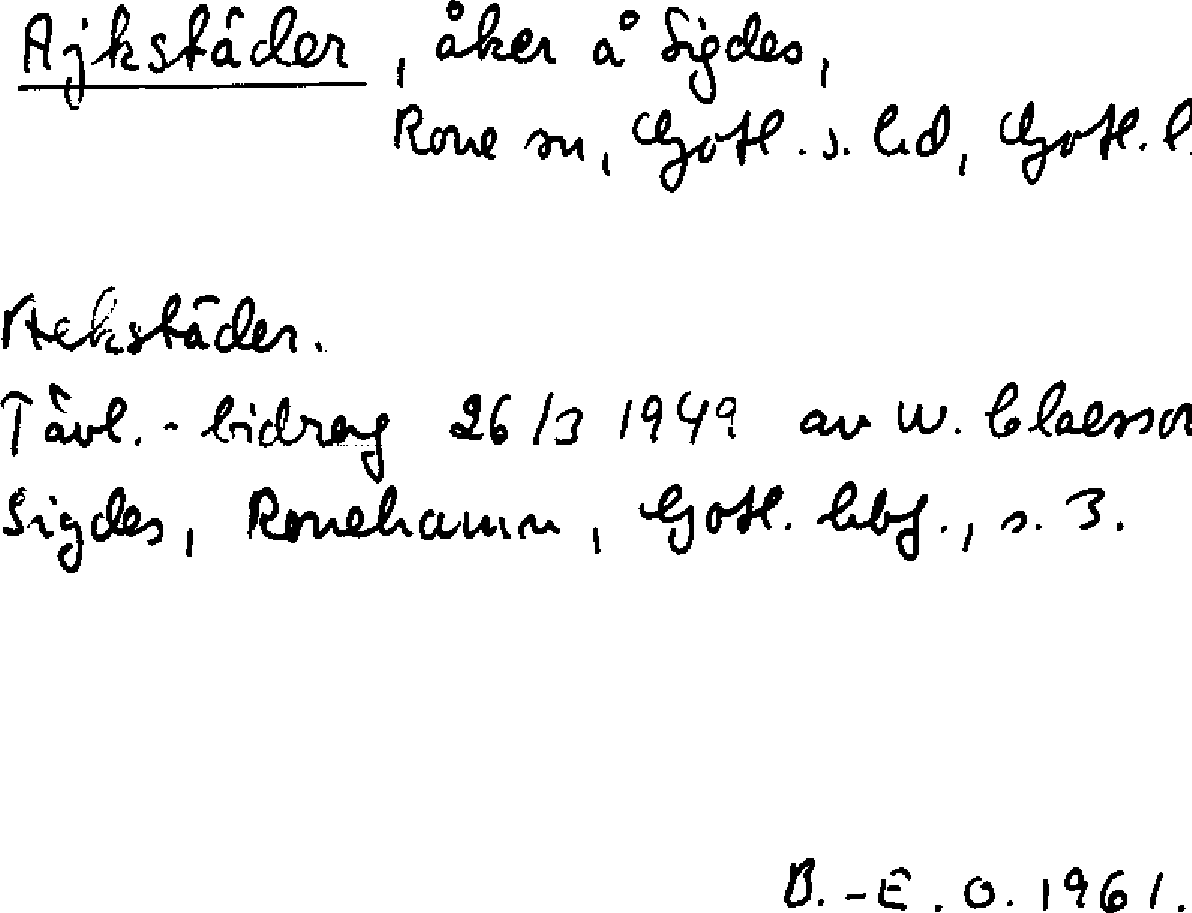 Ajkstäder, åker å Sigdes,
Rone sn, Gotl. s. hd, Gotl. l.
Aekstäder.
Tävl.-bidrag 26/3 1949 av W. Claesson
Sigdes, Ronehamn, Gotl. hbf., s. 3.
B.-E. O. 1961.